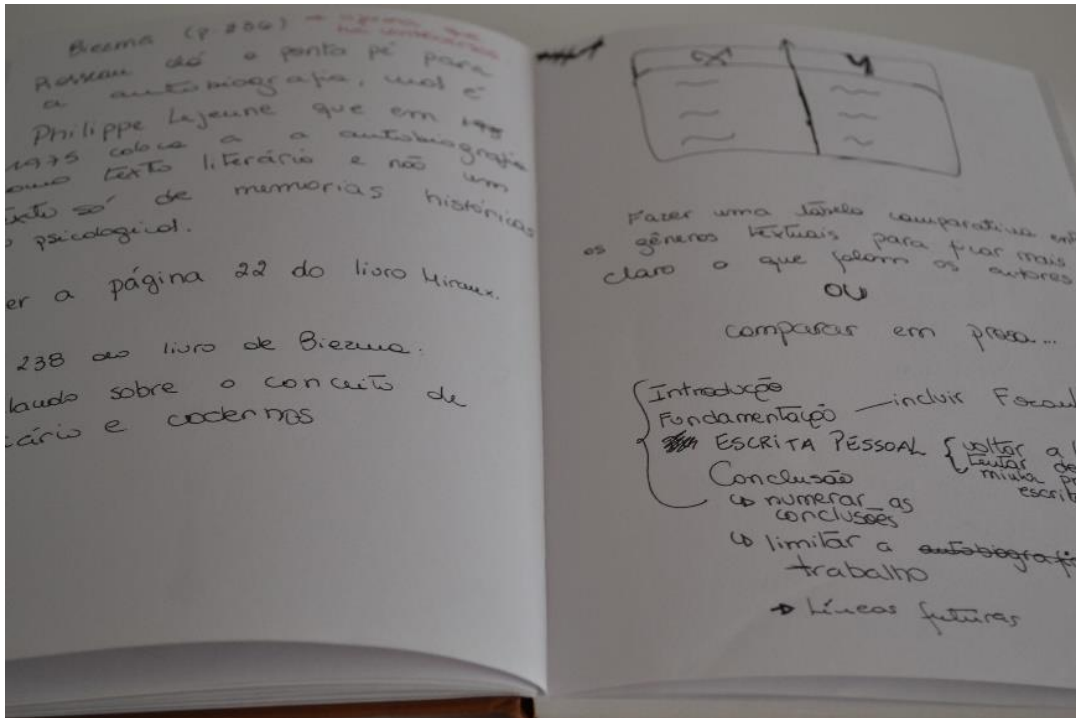 Biezma (p. 236) →
Rosseau dá o ponta pé para
a autobiografia, mas é
Philippe Lejeune que em
1975 coloca a autobiografia
como texto literário e não um
só de memorias históricas
o psicological.
er a página 22 do livro Miraux.
238 do livro de Biezma.
lando sobre o conceito de
iário e cadernos
X Y
Fazer uma tabela comparativa en
os gêneros textuais para ficar mais
claro o que falam os autores
OU
comparar em prosa...
Introdução
Fundamentação — incluir Foucau
ESCRITA PESSOAL { voltar a l
tentar de
minha p
escrit
Conclusão
↳ numerar as
conclusões
↳ limitar a autobiografia
trabalho
→ Líneas futuras